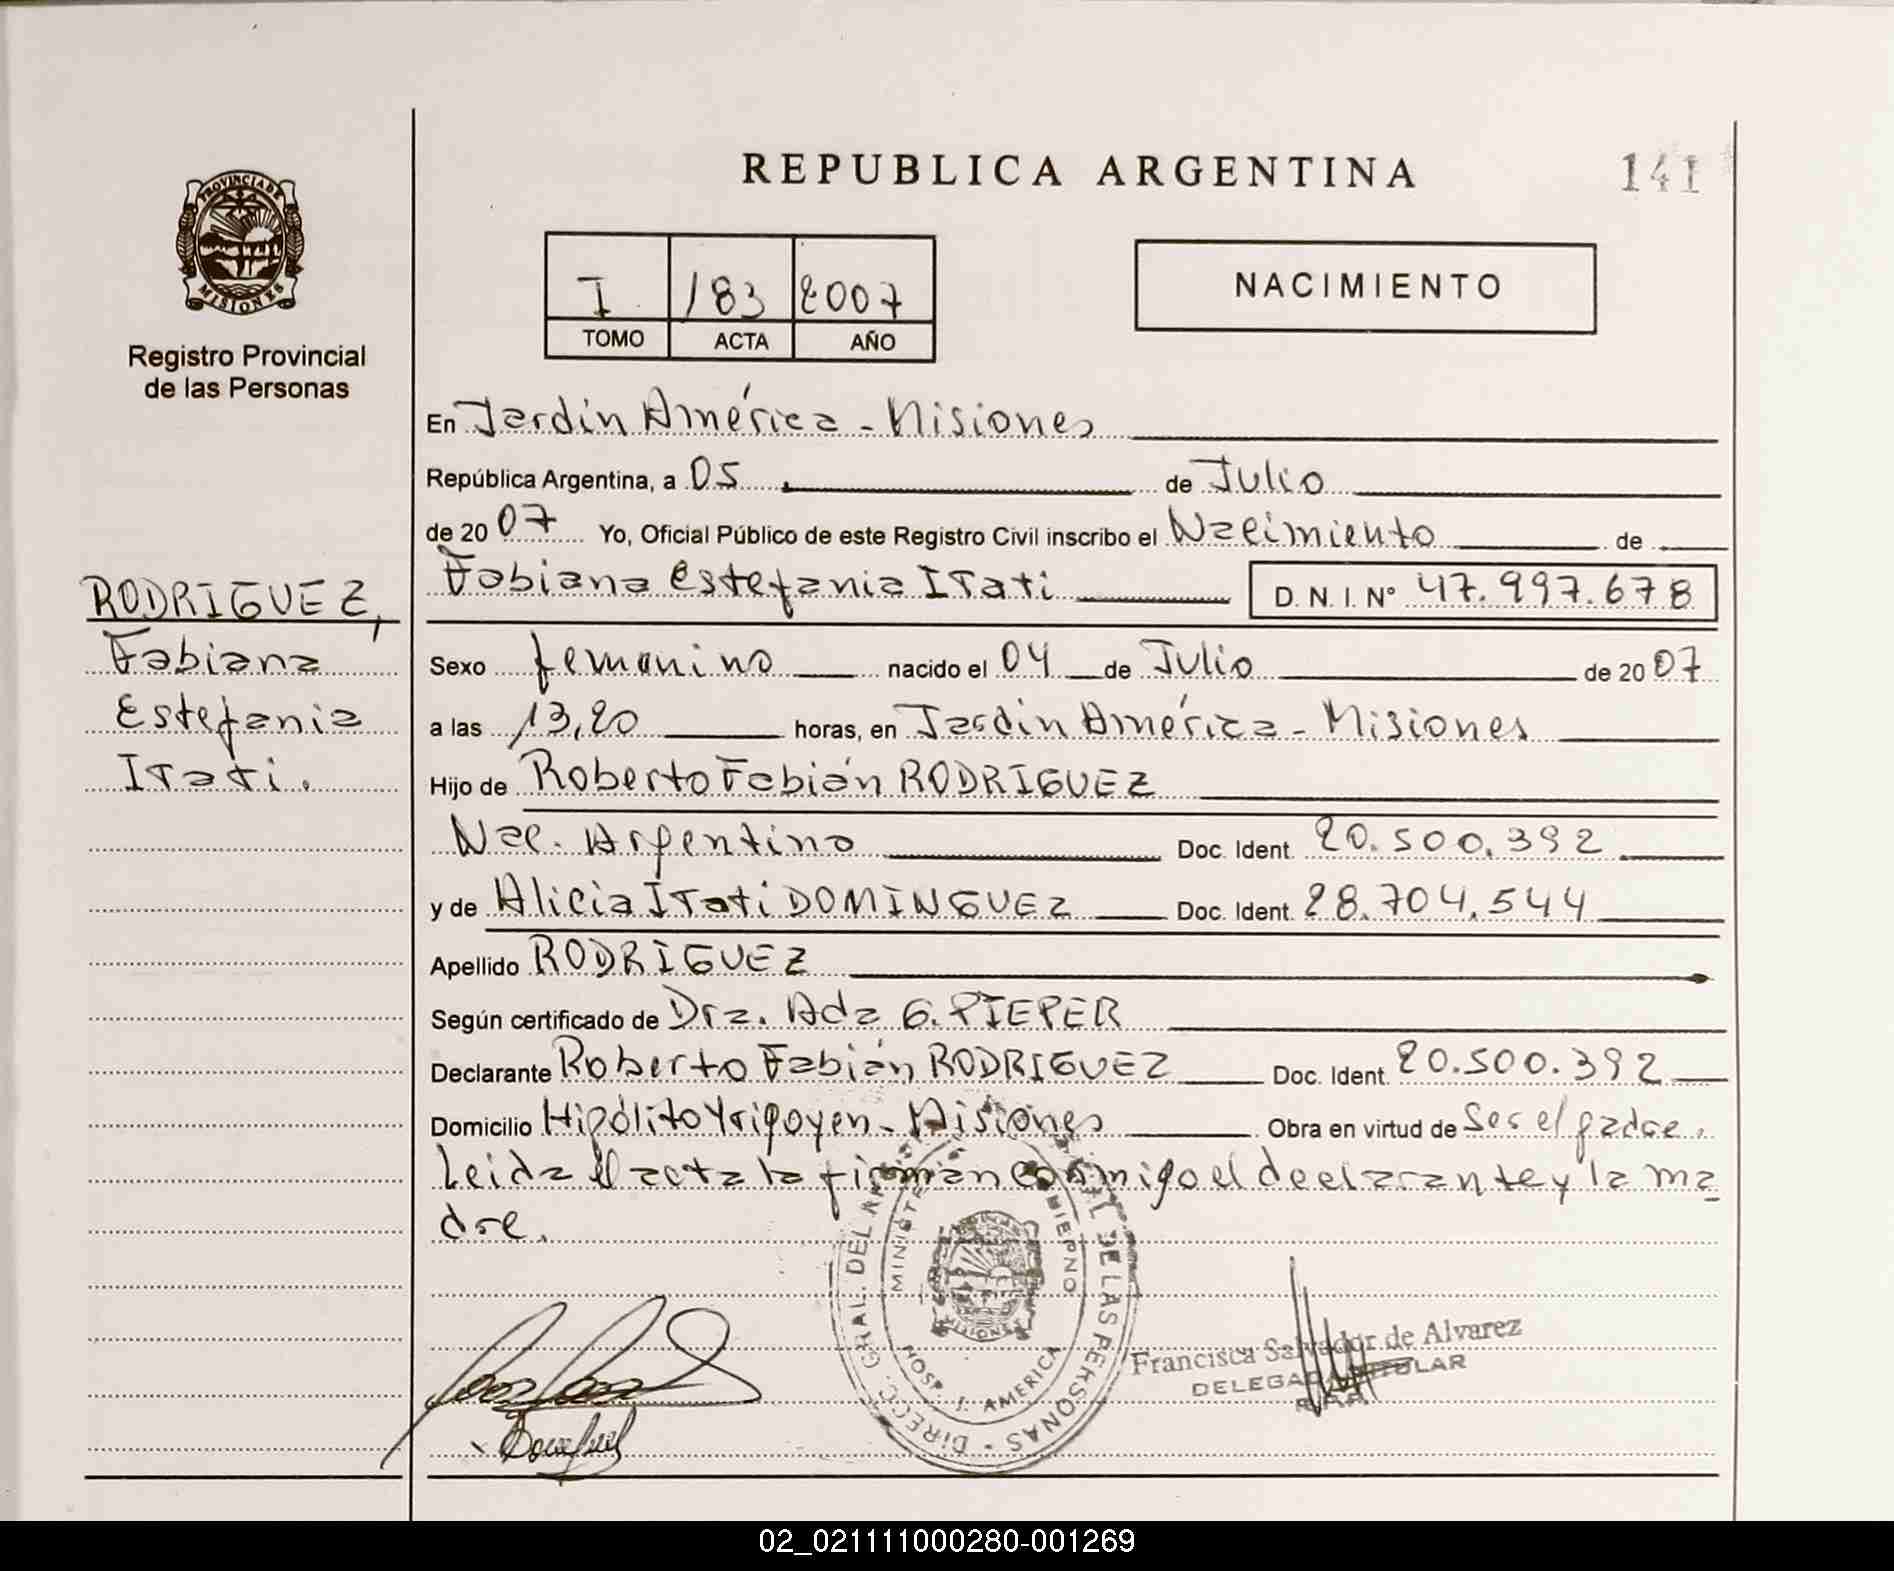 PROVINCIA DE
MISIONES
Registro Provincial
de las Personas
RODRIGUEZ,
Fabiana
Estefania
Itati.
REPUBLICA ARGENTINA
141
I 183 2007
TOMO ACTA AÑO
NACIMIENTO
En Jardín América - Misiones
República Argentina, a 05 de Julio
de 2007 Yo, Oficial Público de este Registro Civil inscribo el Nacimiento de
Fabiana Estefania Itati D. N. I. N° 47.997.678
Sexo femenino nacido el 04 de Julio de 2007
a las 13,20 horas, en Jardín América - Misiones
Hijo de Roberto Fabián RODRIGUEZ
Nac. Argentino Doc. Ident. 20.500.392
y de Alicia Itati DOMINGUEZ Doc. Ident. 28.704.544
Apellido RODRIGUEZ
Según certificado de Dra. Ada G. PIEPER
Declarante Roberto Fabián RODRIGUEZ Doc. Ident. 20.500.392
Domicilio Hipólito Yrigoyen - Misiones Obra en virtud de Ser el padre.
Leida el acta la firman conmigo el declarante y la ma
dre.
DIRECC. GRAL. DEL DE LAS PERSONAS
HOSP. J. AMERICA
MISIONES
Francisca Salvador de Alvarez
DELEGADA TITULAR
02_021111000280-001269